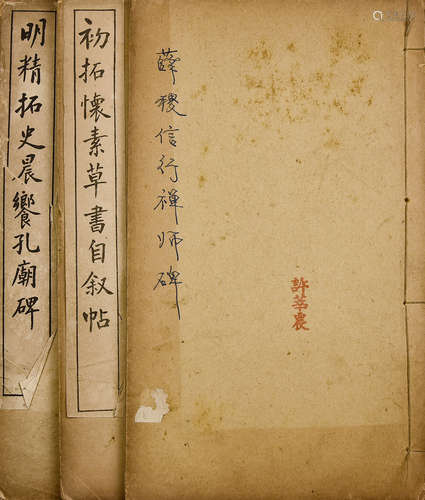 明精拓史晨饗孔廟碑
初拓懷素草書自敘帖
薛稷信行禪師碑
許莘農